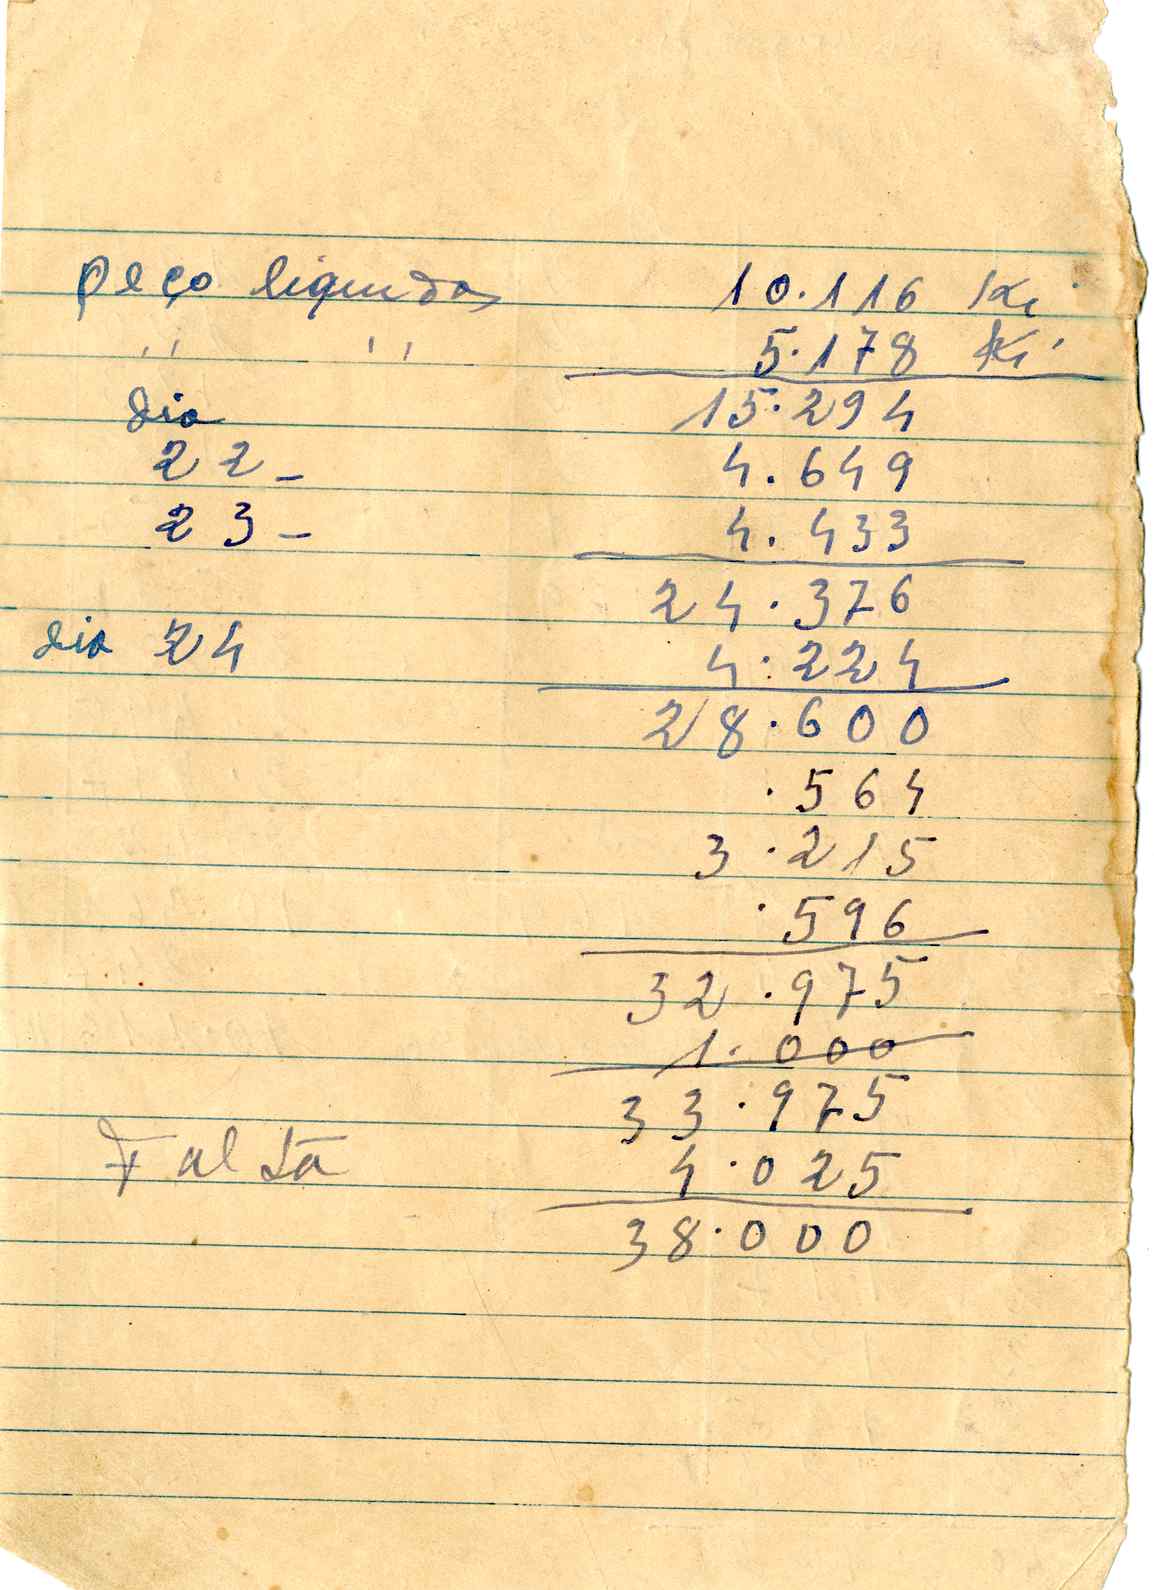 peço liquidos 10.116 Ki
" " 5.178 Ki
dia 15.294
22 - 4.649
23 - 4.433
24.376
dia 24 4.224
28.600
.564
3.215
.596
32.975
1.000
33.975
Falta 4.025
38.000